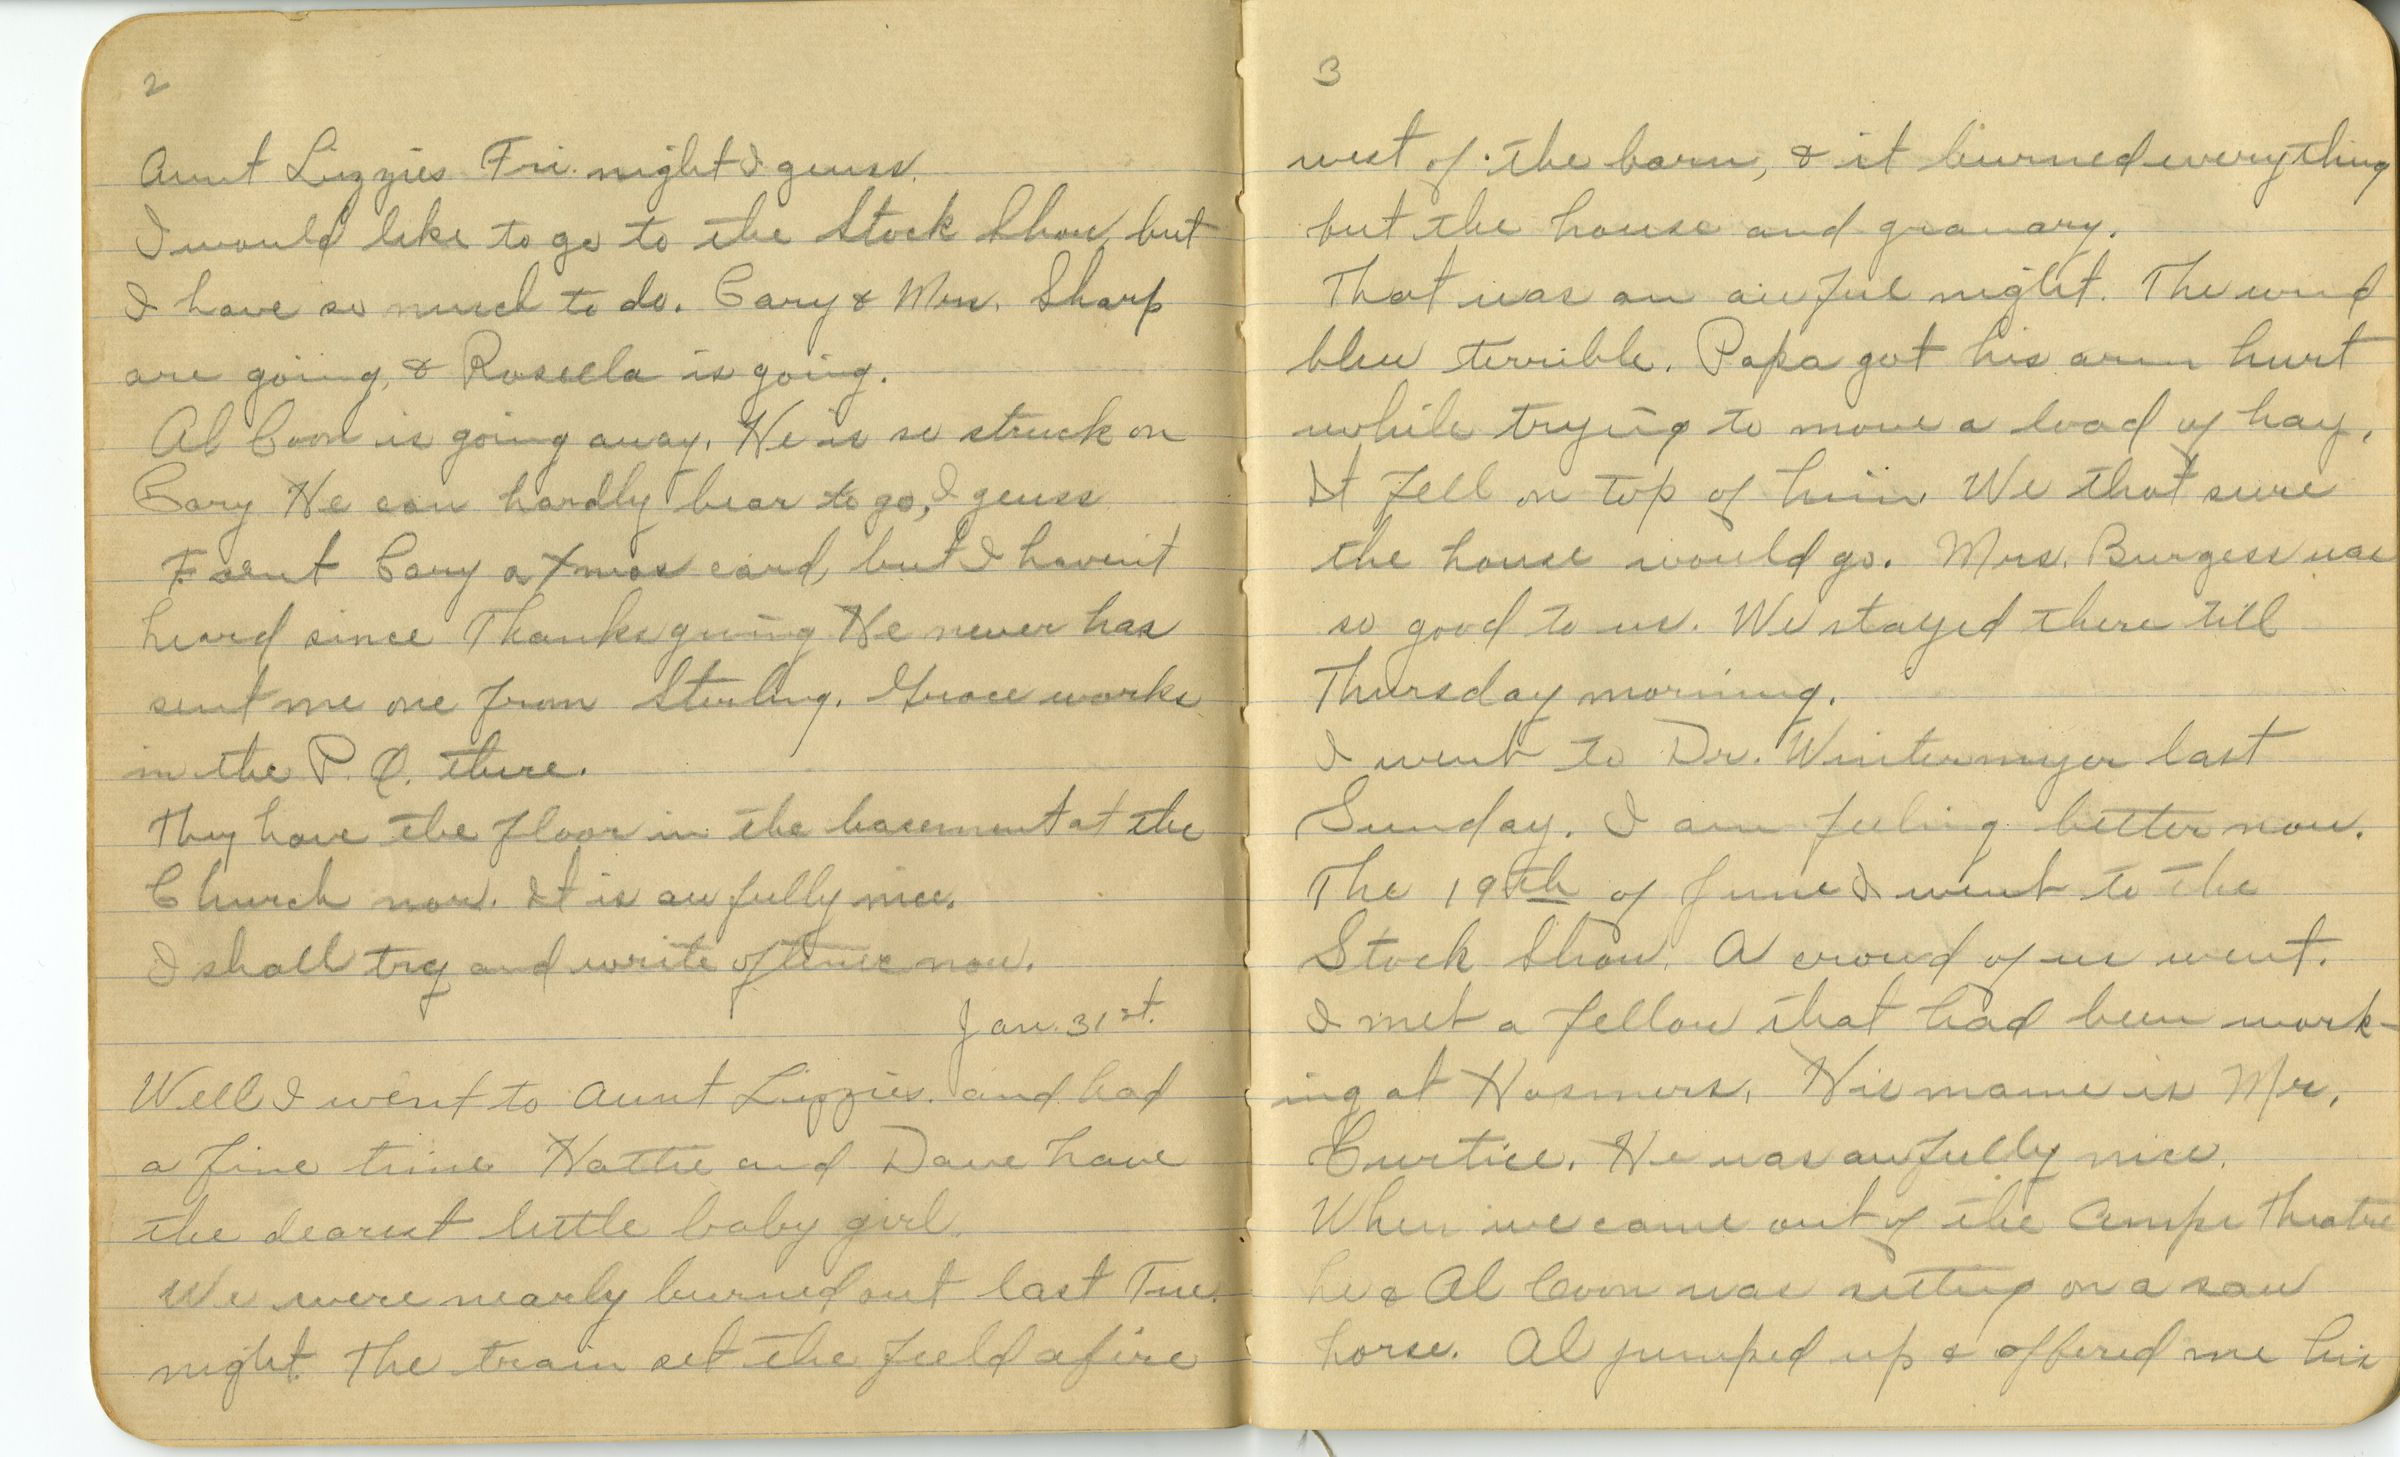 2
Aunt Lizzies Fri. night I guess.
I would like to go to the Stock Show, but
I have so much to do. Cary & Mrs. Sharp
are going, & Rosella is going.
Al Coon is going away. He is so struck on
Cary He can hardly bear to go, I geuss
sent Cary a Xmas card, but I haven't
heard since Thanksgiving He never has
sent me one from Sterling. Grace works
in the P. O. there.
They have the floor in the basement at the
Church now. It is awfully nice.
I shall try and write oftener now.
Jan. 31st.
Well I went to Aunt Lizzies. and had
a fine time. Hattie and Dave have
the dearest little baby girl.
We were nearly burned out last Tue.
night. The train set the field afire
3
west of the barn, & it burned everything
but the house and granary.
That was an awful night. The wind
blew terrible. Papa got his arm hurt
while trying to move a load of hay.
It fell on top of him. We that sure
the house would go. Mrs. Burgess was
so good to us. We stayed there till
Thursday morning.
I went to Dr. Wintermyer last
Sunday. I am feeling better now.
The 19th of June I went to the
Stock Show. A crowd of us went.
I met a fellow that had been work-
ing at Hosmers. His name is Mr.
Curtice. He was awfully nice.
When we came out of the Theatre
he & Al Coon was setting on a saw
horse. Al jumped up & offered me his